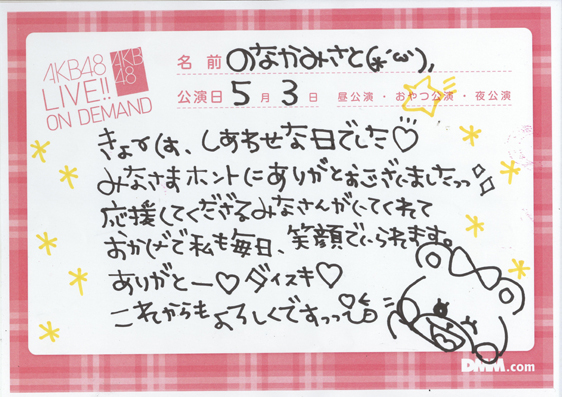 AKB48
LIVE!!
ON DEMAND
AKB
48
名前 のなかみさと(*´ω`),
公演日 5月3日 昼公演・おやつ公演・夜公演
きょーは、しあわせな日でした♡
みなさまホントにありがとおございましたっっ
応援してくださるみなさんがいてくれて
おかげで私も毎日、笑顔でいられます。
ありがとー♡ダイスキ♡
これからもよろしくですっっ
DMM.com